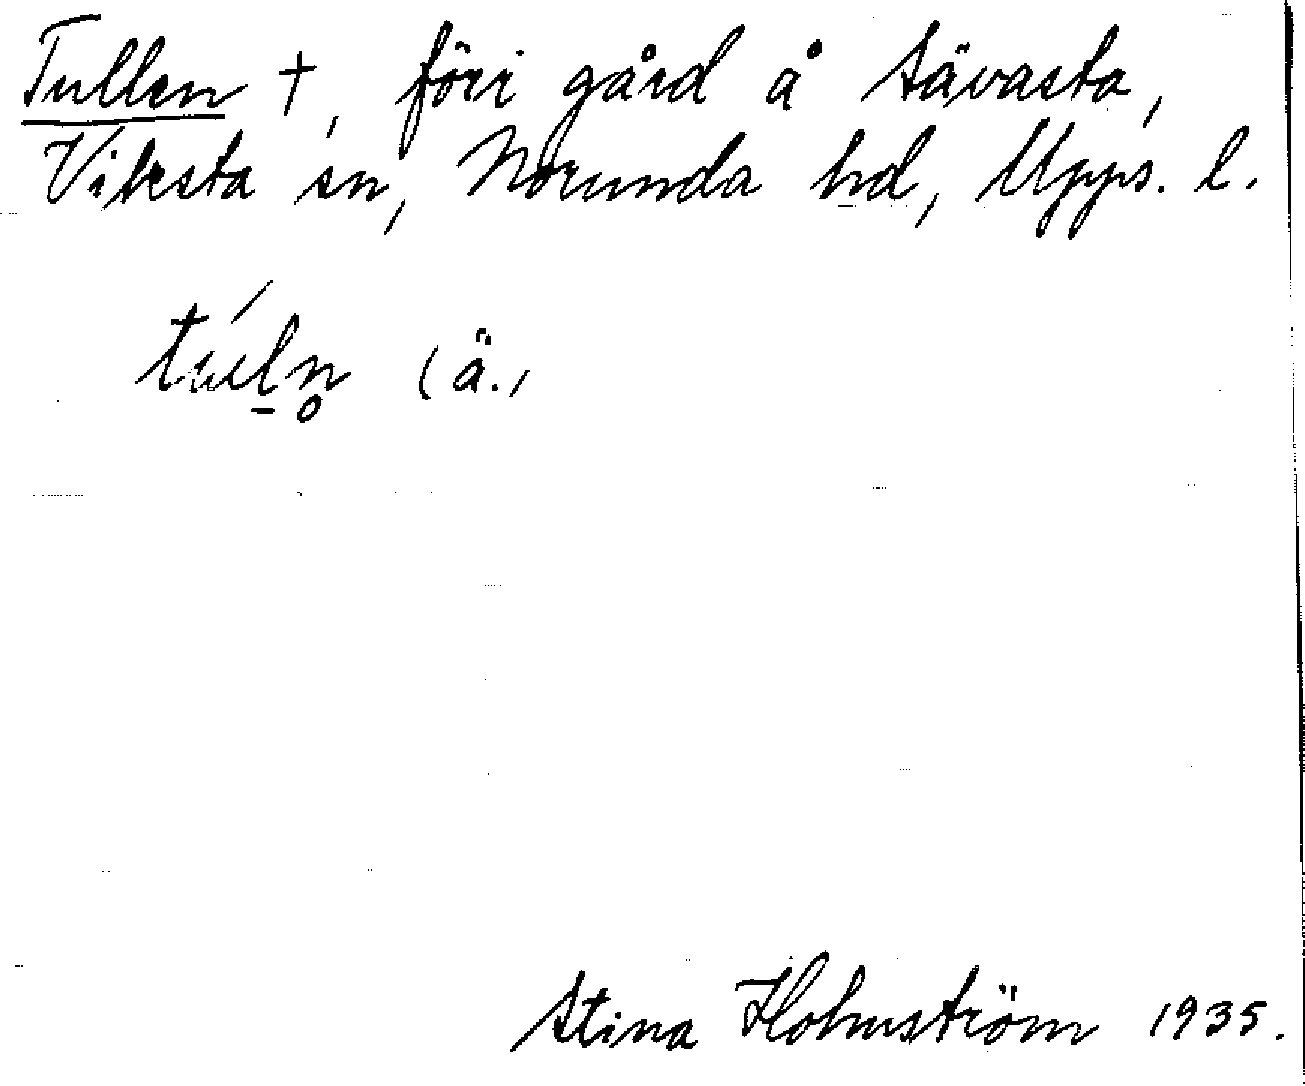 Tullen †, förr gård å Sävasta,
Viksta sn, Norunda hd, Upps. l.
túln̥ (ä.)
Stina Holmström 1935.